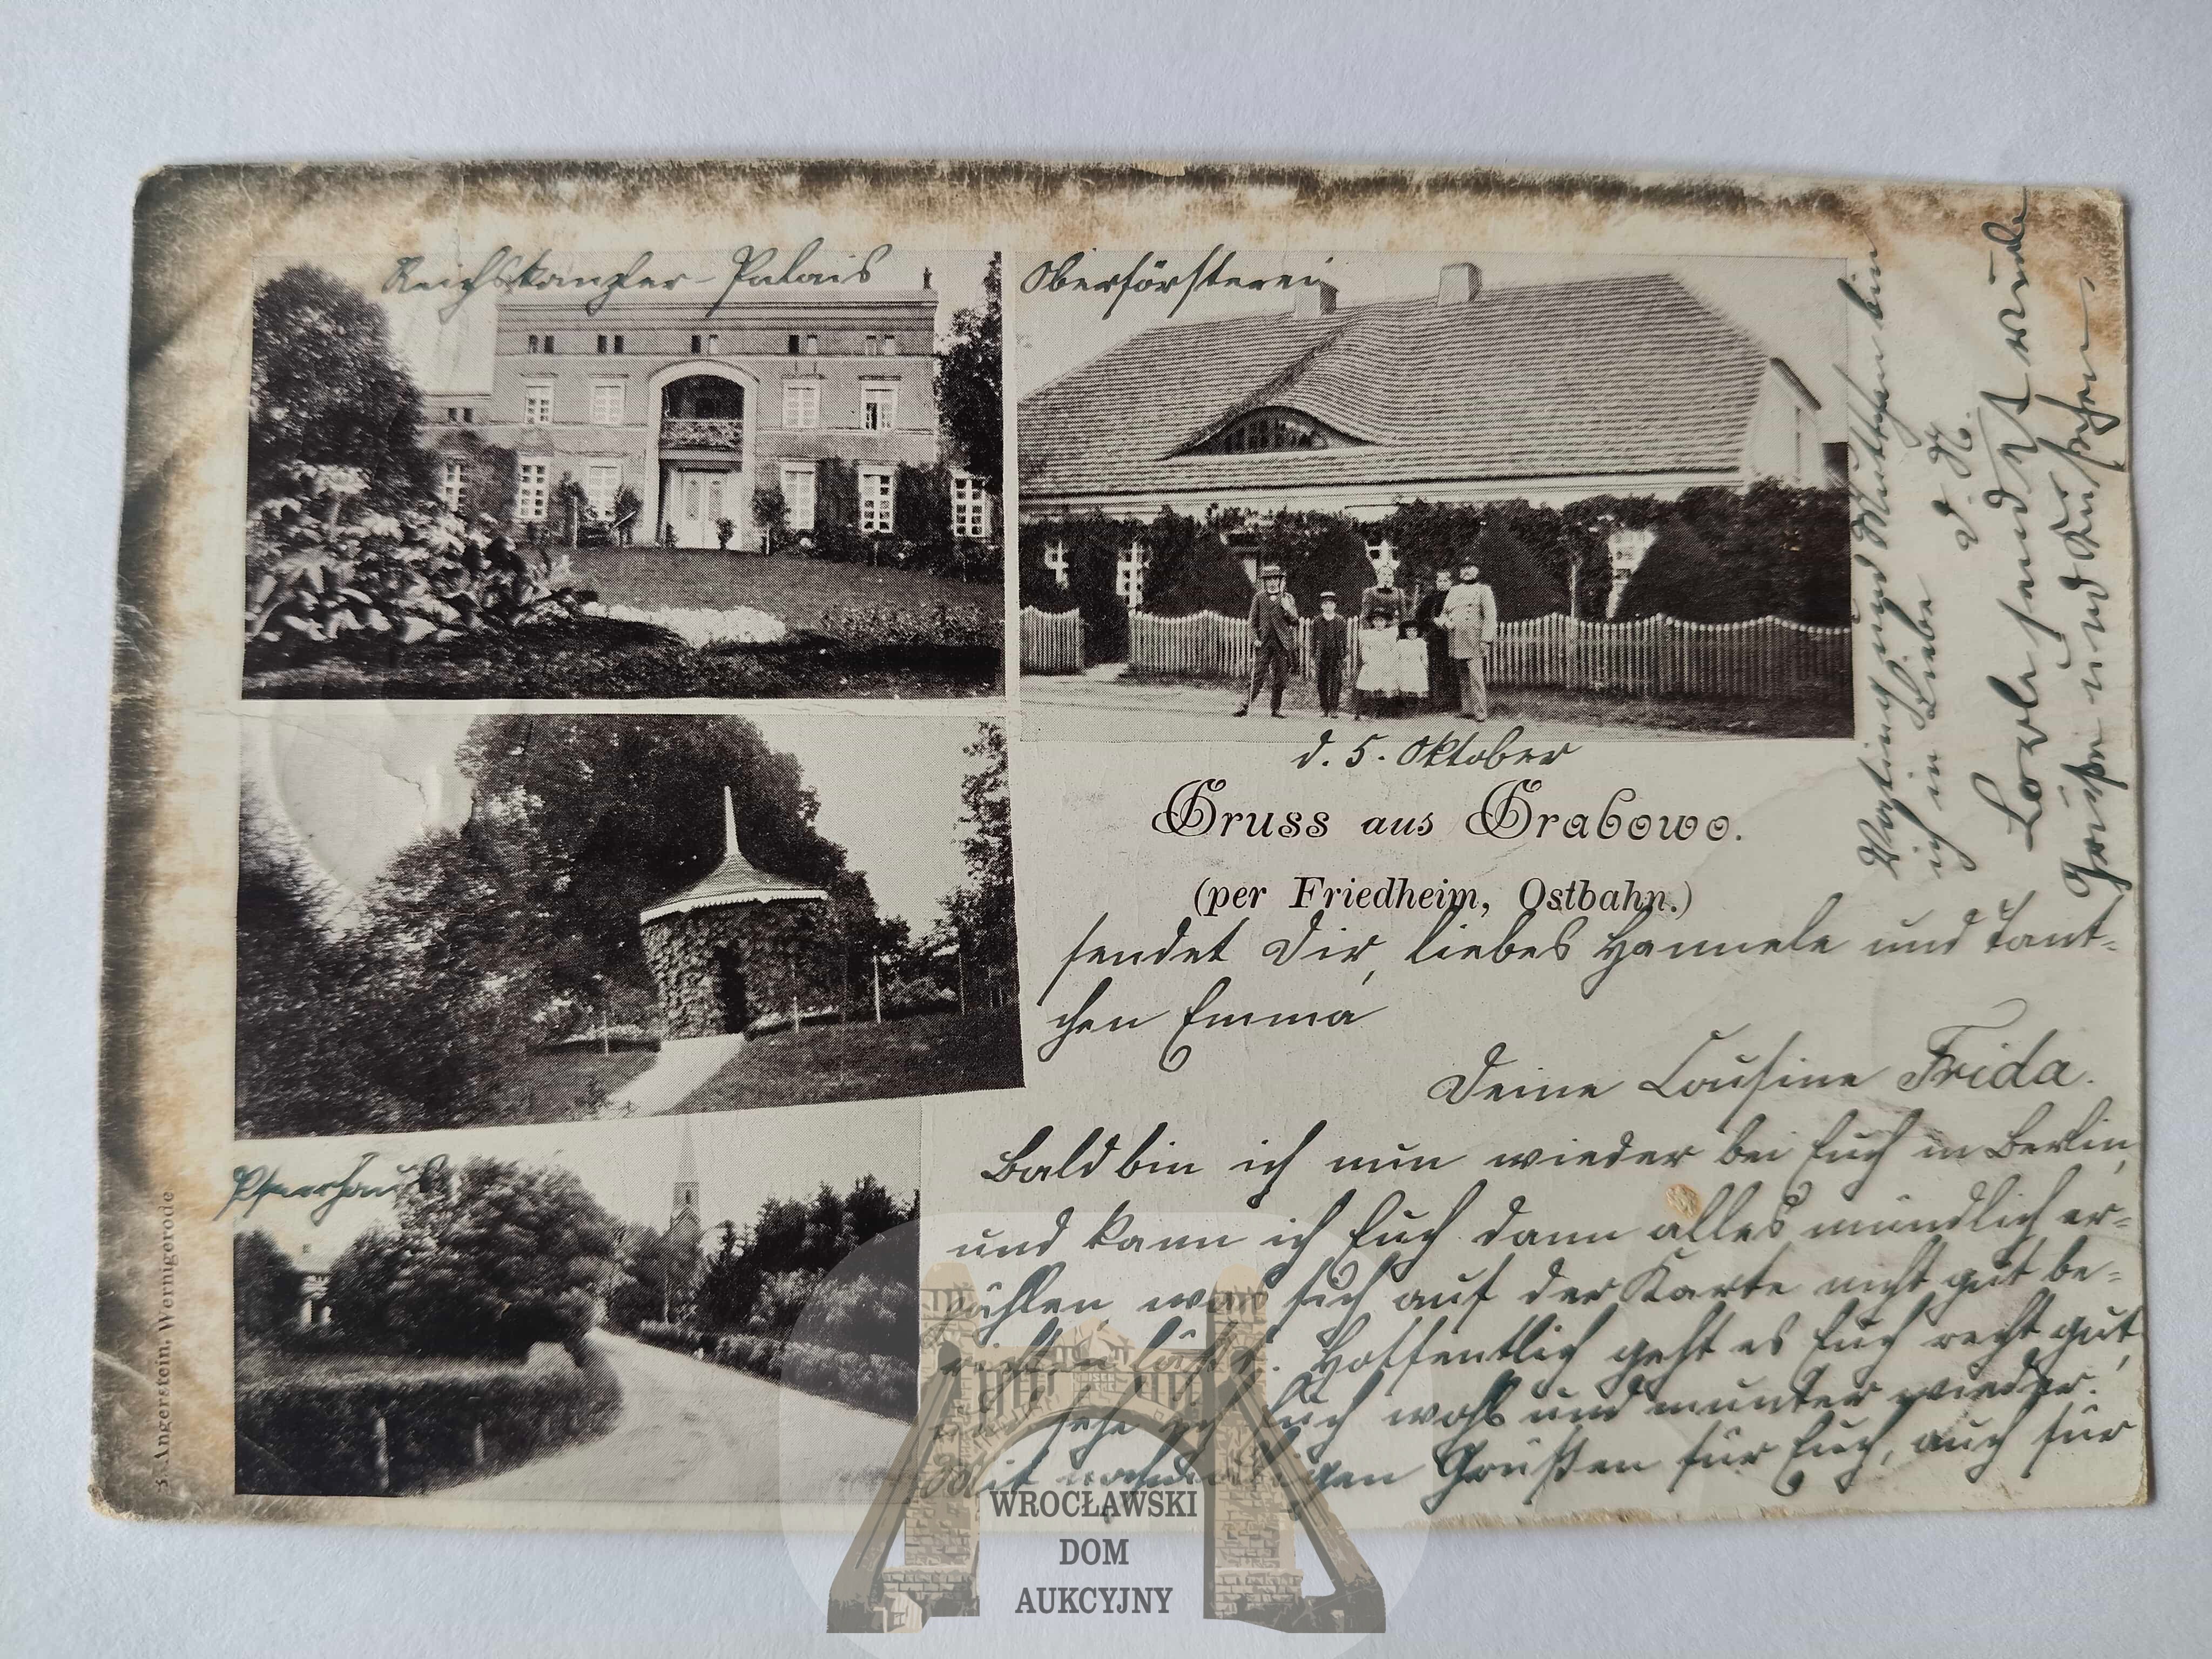 Reichskanzler-Palais
Oberförsterei
Pfarrhaus
d. 5. Oktober
Gruss aus Grabowo.
(per Friedheim, Ostbahn.)
sendet Dir, liebes Hannele und Tant-
chen Emma
Deine Cousine Frida.
Bald bin ich nun wieder bei Euch in Berlin,
und kann ich Euch dann alles mündlich er-
zählen, was sich auf der Karte nicht gut be-
richten läßt. Hoffentlich geht es Euch recht gut,
und sehe ich Euch wohl und munter wieder.
Mit Grüßen für Euch, auch für
und Muttchen bin
ich in Liebe
D. H.
sendet
Grüße und
Angerstein, Wernigerode
WROCŁAWSKI
DOM
AUKCYJNY